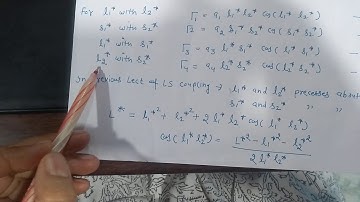 For l1* with l2* Γ1 = a1 l1* l2* cos(l1* l2*)
s1* with s2* Γ2 = a2 s1* s2* cos(s1* s2*)
l1* with s1* Γ3 = a3 l1* s1* cos(l1* s1*)
l2* with s2* Γ4 = a4 l2* s2* cos(l2* s2*)
In previous Lect of LS coupling → l1* and l2* precesses about
s1* and s2* " "
L*² = l1*² + l2*² + 2 l1* l2* cos(l1* l2*)
cos(l1* l2*) = L*² - l1*² - l2*² / 2 l1* l2*